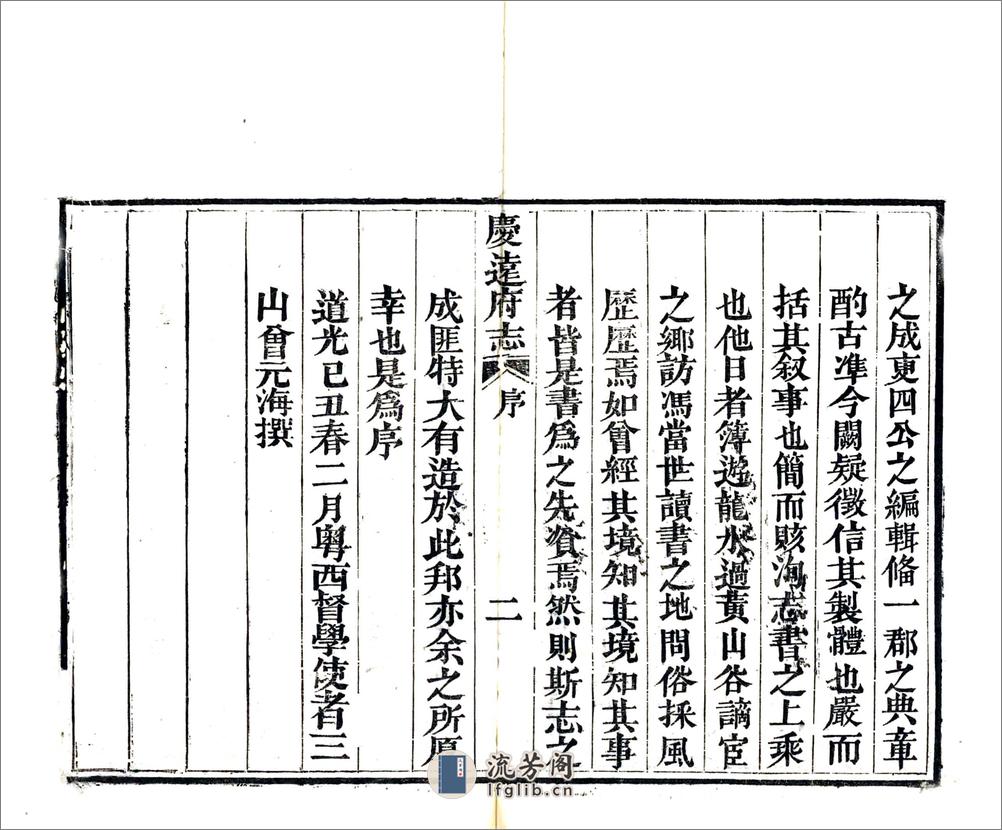 之成更四公之編輯俻一郡之典章
酌古准今闕疑徵信其製體也嚴而
括其敘事也簡而賅洵志書之上乘
也他日者簿遊龍水過黃山谷謫宦
之鄉訪馮當世讀書之地問俗採風
歷歷焉如曾經其境知其境知其事
者皆是書爲之先資焉然則斯志之
慶遠府志 序 二
成匪特大有造於此邦亦余之所厚
幸也是爲序
道光已丑春二月粵西督學使者三
山曾元海撰
流芳阁
lfglib.cn